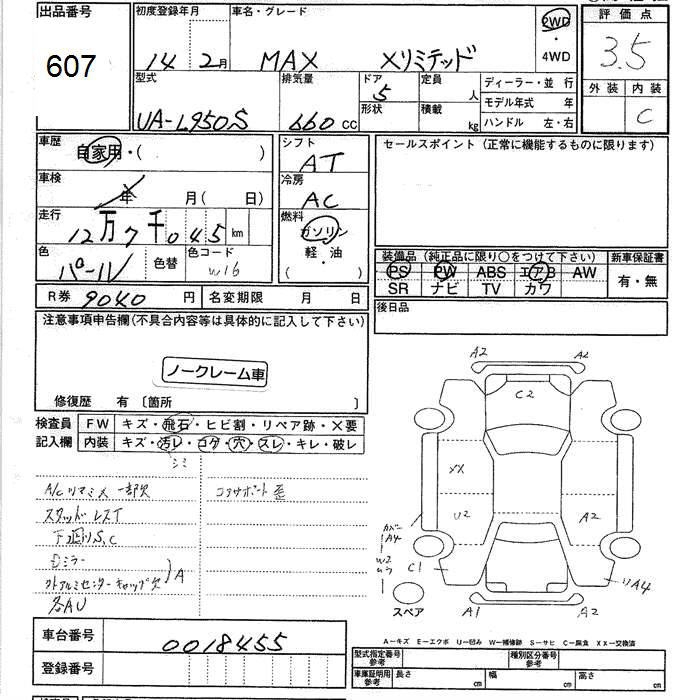 出品番号
607
初度登録年月
14年 2月
車名・グレード
MAX Xリミテッド
2WD
・
4WD
評価点
3.5
外装 内装
C
型式
UA-L950S
排気量
660 cc
ドア
5
形状
定員
人
積載
kg
ディーラー・並行
モデル年式 年
ハンドル 左・右
車歴
自家用・( )
車検
年 月(日)
走行
12万7千045 km
色
パール
色替
色コード
W16
シフト
AT
冷房
AC
燃料
ガソリン
軽・油
( )
セールスポイント(正常に機能するものに限ります)
装備品(純正品に限り○をつけて下さい)
PS PW ABS エアB AW
SR ナビ TV カワ
新車保証書
有・無
後日品
R券 9040 円
名変期限 月 日
注意事項申告欄(不具合内容等は具体的に記入して下さい)
ノークレーム車
修復歴 有 〔箇所 〕
検査員
記入欄
FW キズ・飛石・ヒビ割・リペア跡・X要
内装 キズ・汚レ・コゲ・穴・スレ・キレ・破レ
シミ
A/Cリマミメ 一部欠
コアサポート歪
スタッドレスT
下廻りS,C
Dミラー
外アルミセンターキャップ欠
A
各AU
A2
A2
C2
XX
U2
A2
カバー
A4
W2
ムラ
C1
リA4
スペア
A1
A2
A−キズ E−エクボ U−凹み W−補修跡 S−サビ C−腐食 XX−交換済
車台番号
0018455
登録番号
型式指定番号
参考
種別区分番号
参考
車庫証明用
参考
長さ cm
幅 cm
高さ cm